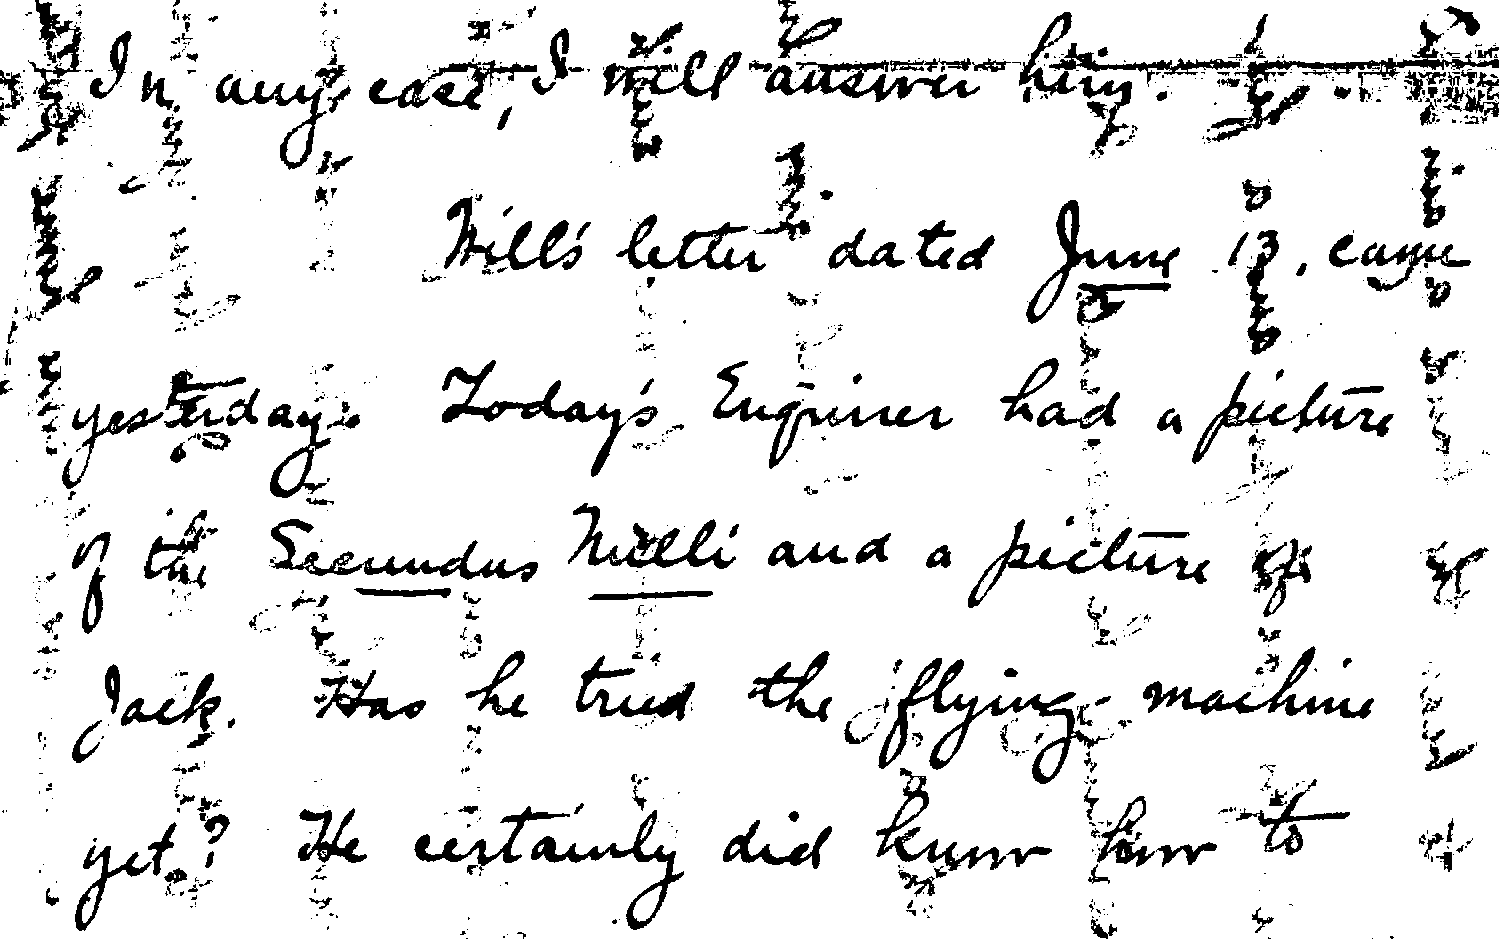 In any case, I will answer him.
Will's letter dated June 13, came
yesterday. Today's Enquirer had a picture
of the Secundus Nulli and a picture of
Jack. Has he tried the flying machine
yet? He certainly did know how to